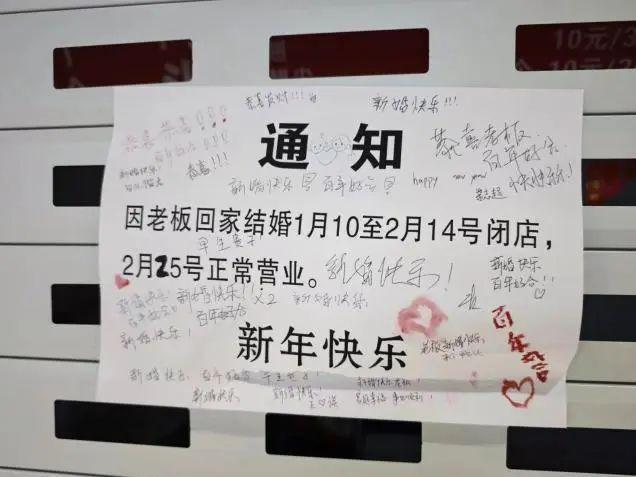 10元/3
10元
恭喜发财!!!
新婚快乐!!!
恭喜 恭喜!!!
通知
恭喜老板
百年好合
快快乐乐!
新婚快乐
恭喜!!!
新婚快乐 百年好合
happy new year
因老板回家结婚1月10至2月14号闭店，
早生贵子
2月25号正常营业。
新婚快乐!
新婚快乐
百年好合!
新婚快乐!
新婚快乐!!
新婚快乐
百年好合
百年好合
新婚快乐!
新年快乐
新婚快乐
新婚快乐
新婚快乐!
新婚快乐